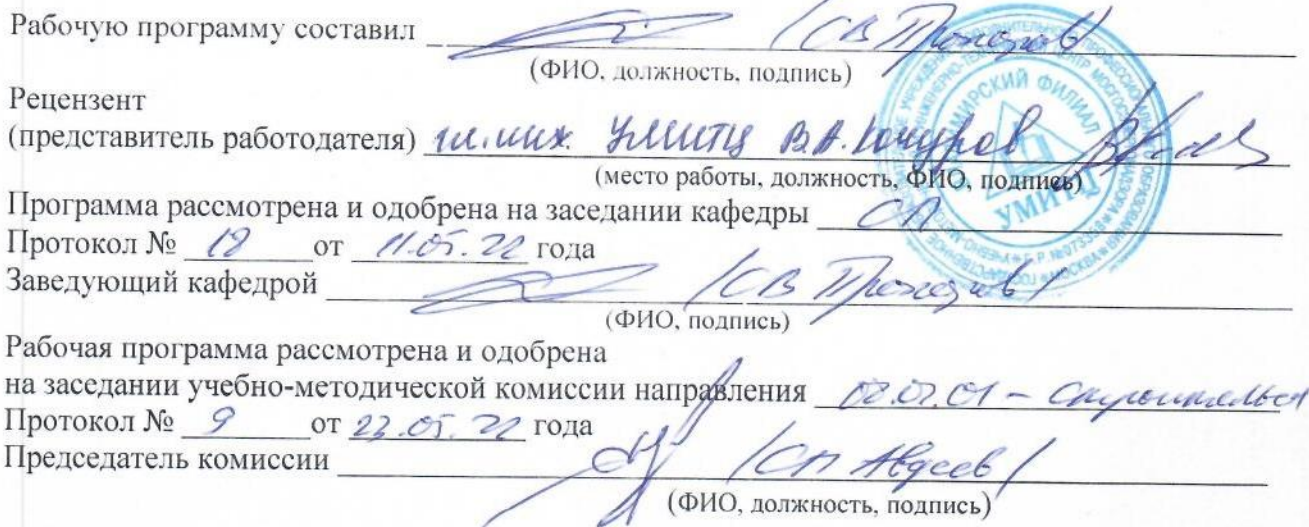 Рабочую программу составил (СВ Прохоров)
(ФИО, должность, подпись)
Рецензент
(представитель работодателя) гл. инж. УМИТЦ В.А.
(место работы, должность, ФИО, подпись)
Программа рассмотрена и одобрена на заседании кафедры СП
Протокол № от 11.05.22 года
Заведующий кафедрой (СВ Прохоров)
(ФИО, подпись)
Рабочая программа рассмотрена и одобрена
на заседании учебно-методической комиссии направления
Протокол № 9 от 23.05.22 года
Председатель комиссии (СП Авдеев)
(ФИО, должность, подпись)
ФИЛИАЛ
УМИТЦ